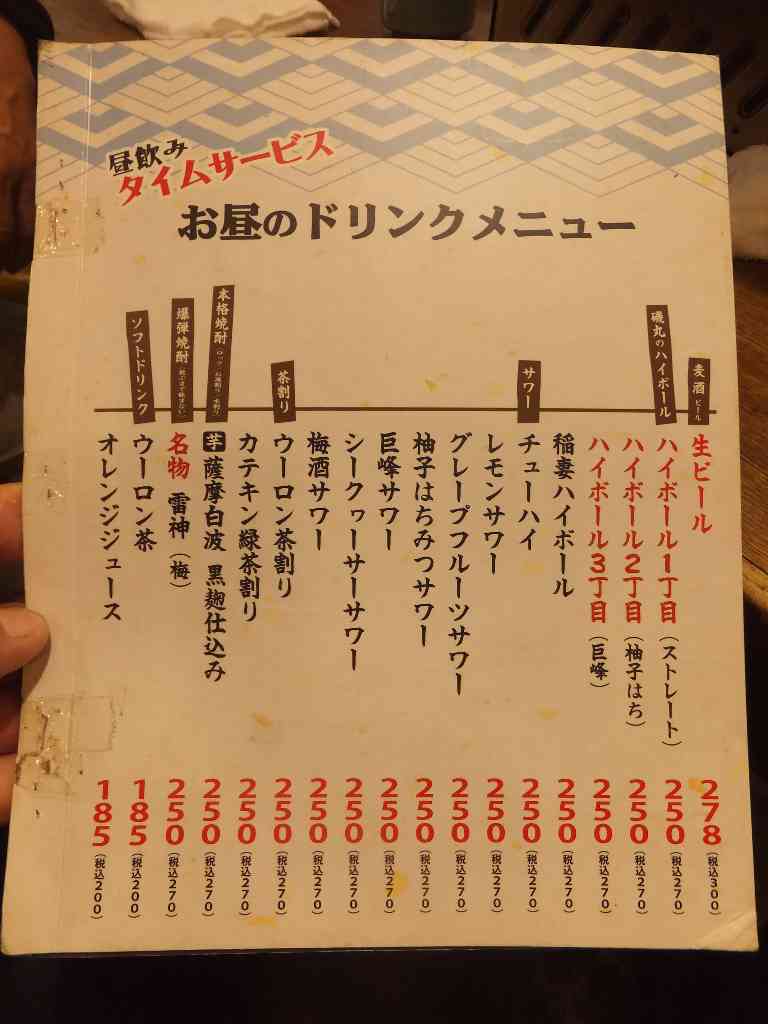 昼飲み
タイムサービス
お昼のドリンクメニュー
麦酒 ビール
生ビール 278(税込300)
磯丸のハイボール
ハイボール1丁目(ストレート) 250(税込270)
ハイボール2丁目(柚子はち) 250(税込270)
ハイボール3丁目(巨峰) 250(税込270)
稲妻ハイボール 250(税込270)
サワー
チューハイ 250(税込270)
レモンサワー 250(税込270)
グレープフルーツサワー 250(税込270)
柚子はちみつサワー 250(税込270)
巨峰サワー 250(税込270)
シークヮーサーサワー 250(税込270)
梅酒サワー 250(税込270)
茶割り
ウーロン茶割り 250(税込270)
カテキン緑茶割り 250(税込270)
本格焼酎
芋 薩摩白波 黒麹仕込み 250(税込270)
爆弾焼酎
名物 雷神(梅) 250(税込270)
ソフトドリンク
ウーロン茶 185(税込200)
オレンジジュース 185(税込200)